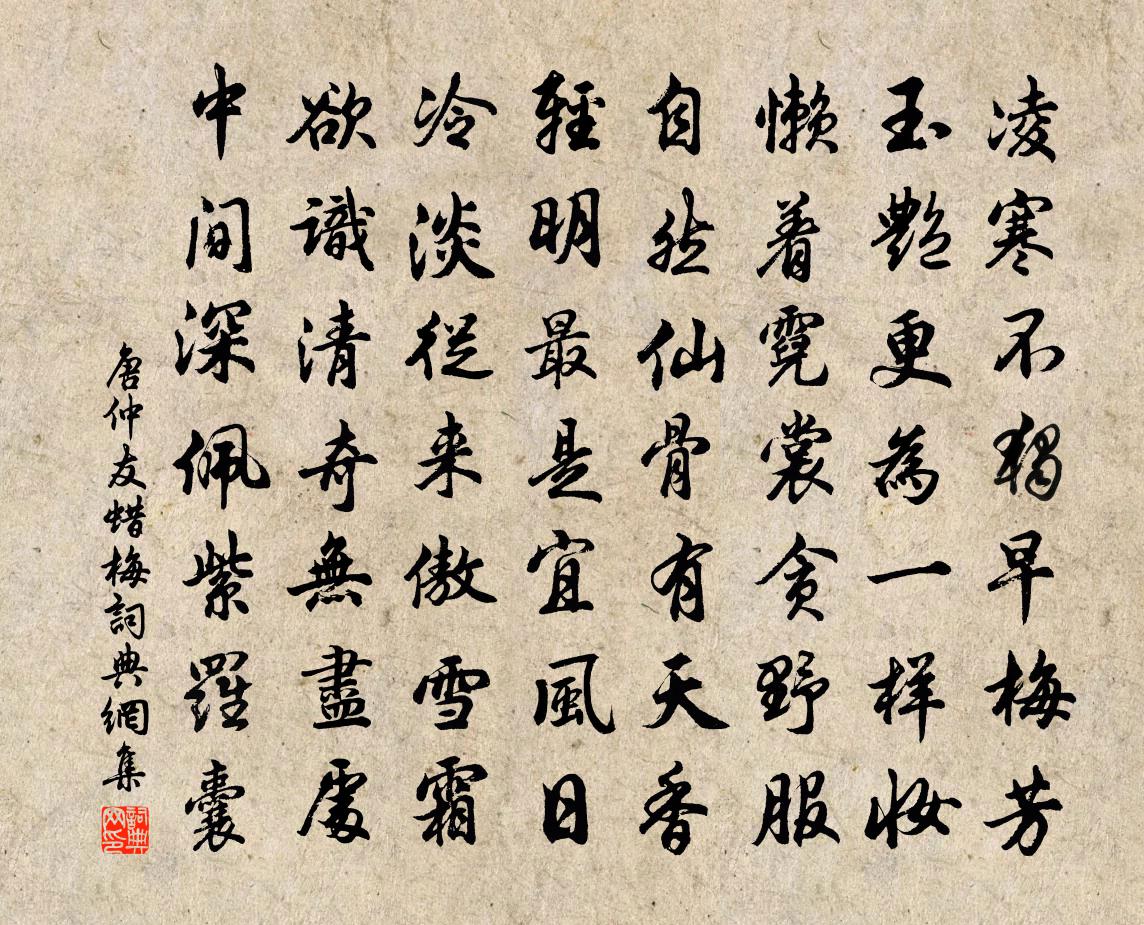 凌寒不獨早梅芳
玉艷更為一样妝
懶着霓裳貪野服
自然仙骨有天香
輕明最是宜風日
冷淡從来傲雪霜
欲識清奇無盡處
中間深佩紫羅囊
唐仲友蜡梅詞典網集
詞典網印